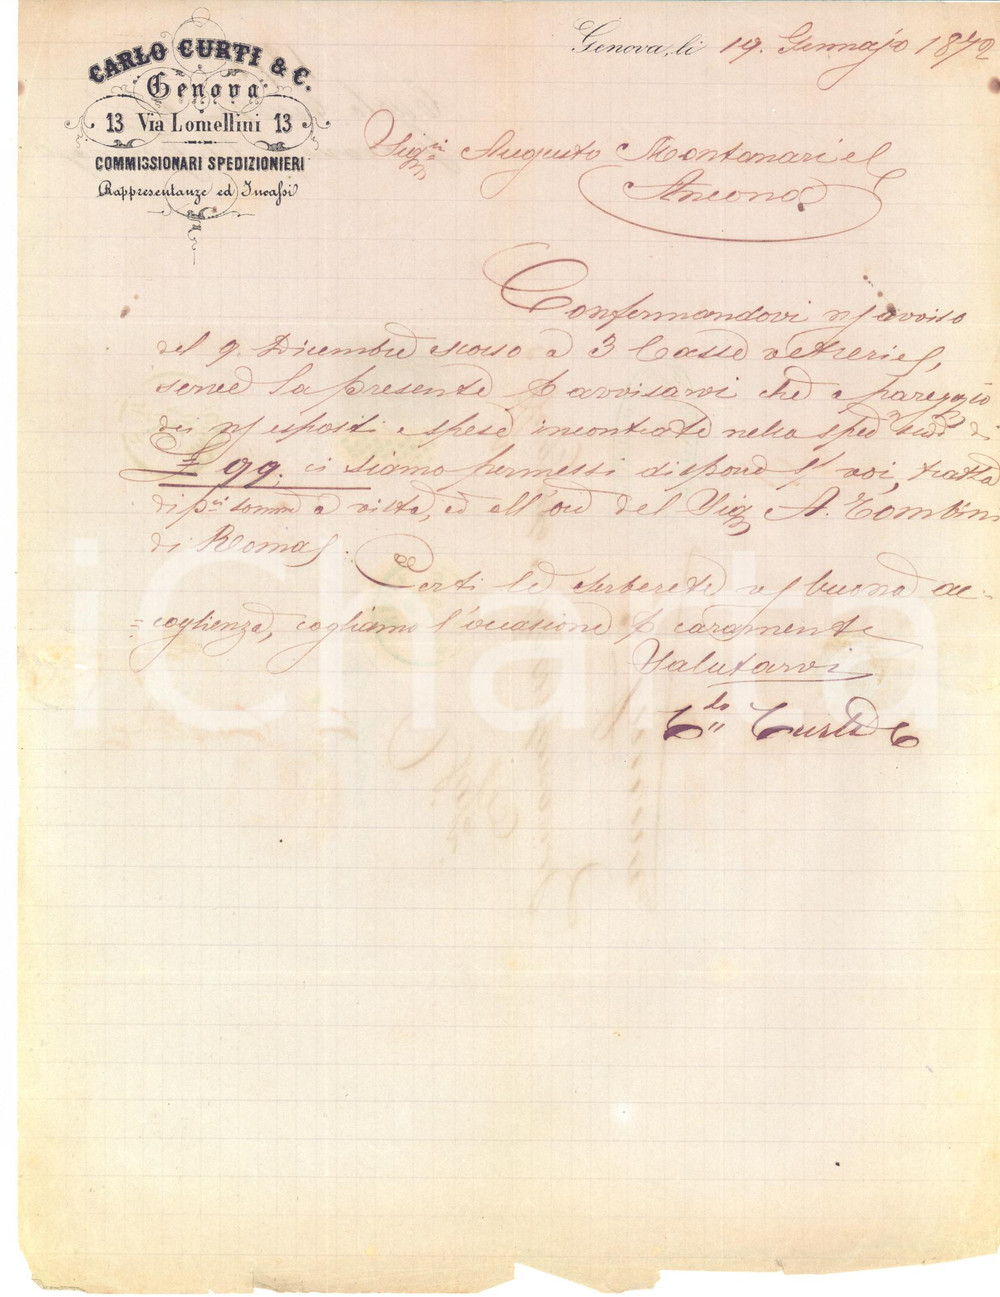 CARLO CURTI & C.
Genova
13 Via Lomellini 13
COMMISSIONARI SPEDIZIONIERI
Rappresentanze ed Incassi
Genova, li 19. Gennajo 1872
Sig.ri Augusto Montanari e C
Ancona
Confermandovi n/ avviso
del 9. Dicembre scorso a 3 Casse vetrerie,
serve la presente p avvisarvi che a pareggio
dei n/ esposti e spese incontrate nella sped di
£ 99. ci siamo permessi disporre s/ voi, tratta
di p somma a vista, ed all'ord del Sig A. Tombini
di Roma.
Certi le serberete n/ buona ac-
=coglienza, cogliamo l'occasione p caramente
Salutarvi
C.lo Curti & C
iCharta